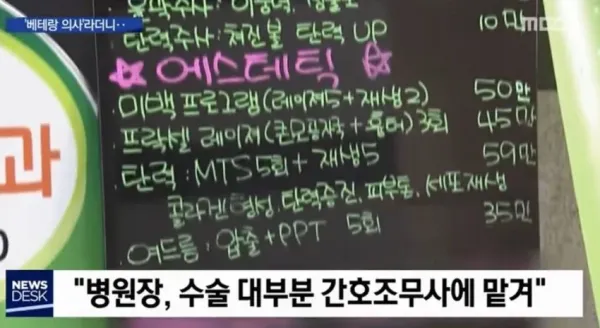 '베테랑 의사'라더니‥
MBC
탄력주사: 처진볼 탄력 UP 10만
☆에스테틱☆
미백 프로그램(레이저5+재생2) 50만
프락셀 레이저(큰모공자국+흉터)3회 45만
탄력: MTS 5회 + 재생5 59만
콜라겐형성, 탄력증진, 피부톤, 세포재생
여드름: 압출+PPT 5회 35만
과
NEWS
DESK
"병원장, 수술 대부분 간호조무사에 맡겨"